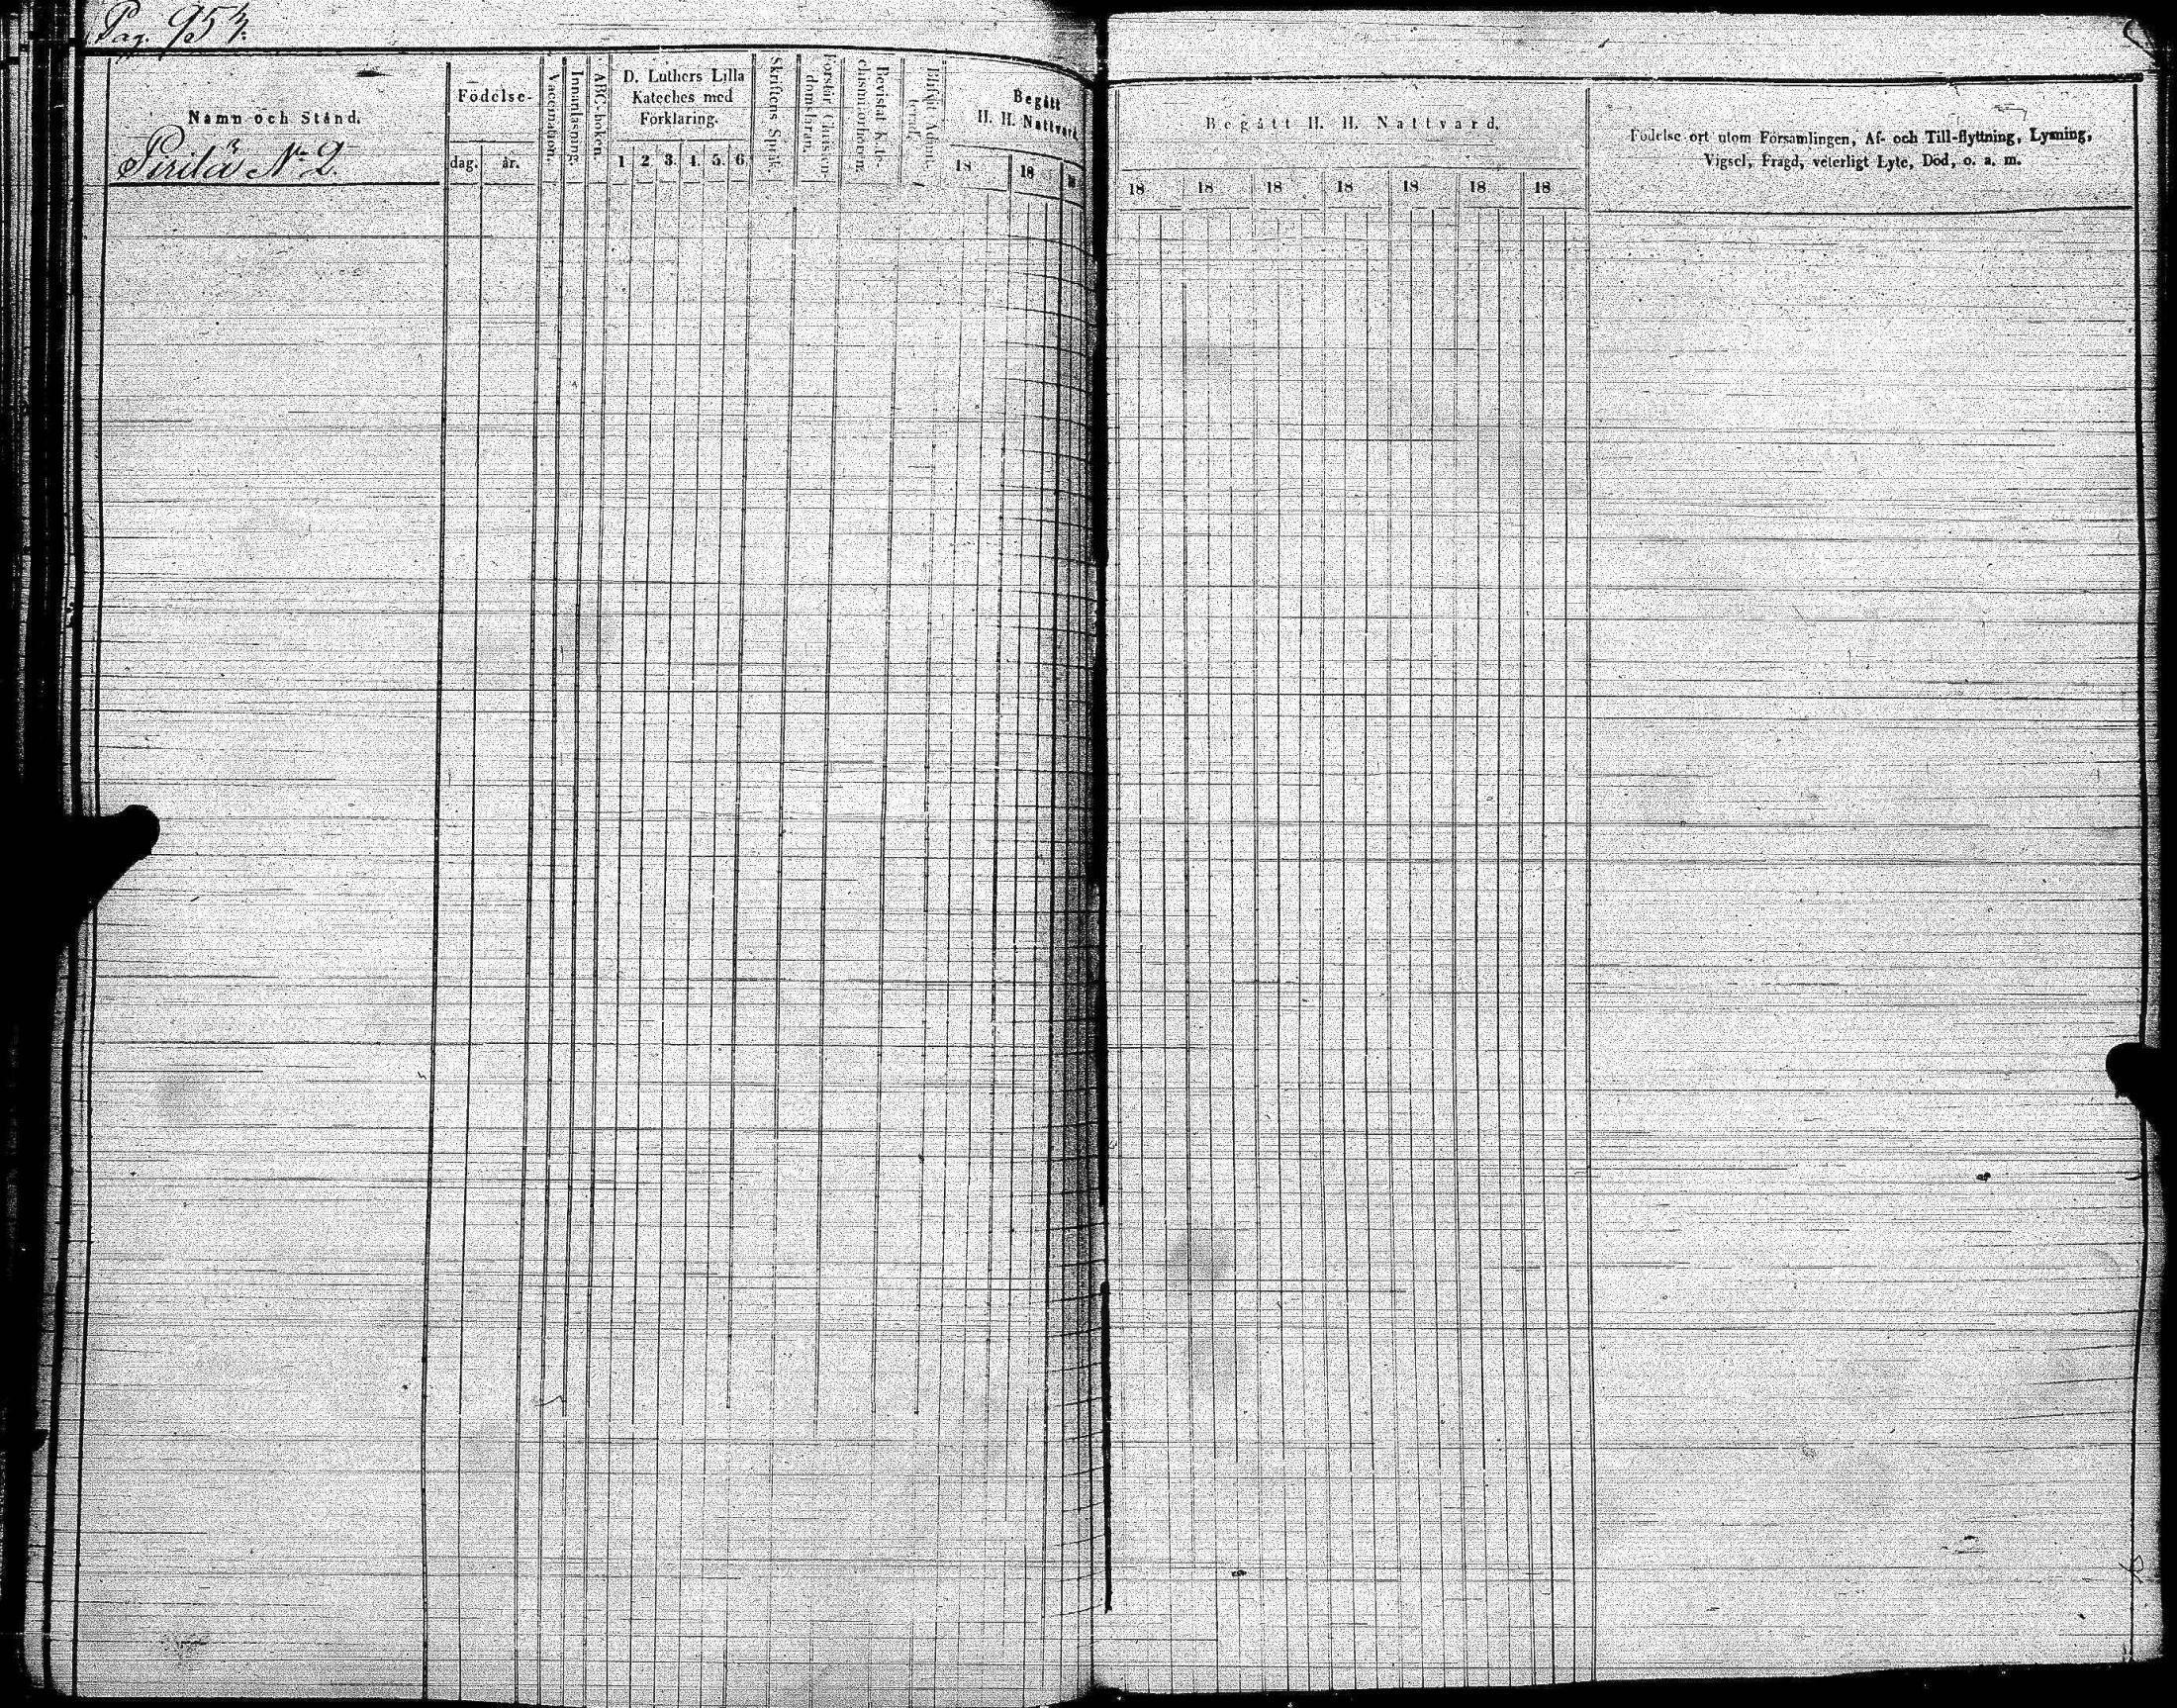 Pag. 953.
Namn och Stånd.
Pirilä No 2.
Födelse-
dag. år.
Vaccination.
Innanläsning.
ABC-boken.
D. Luthers Lilla
Kateches med
Förklaring.
1 2. 3. 4. 5. 6
Skriftens Språk.
Förstår Christen-
domsläran.
Bevistat Kate-
chismiförhören.
Blifvit Admit-
terad.
Begått
H. H. Nattvard.
18 18 18
Begått H. H. Nattvard.
18 18 18 18 18 18 18
Födelse ort utom Församlingen, Af- och Till-flyttning, Lysning,
Vigsel, Frägd, veterligt Lyte, Död, o. a. m.